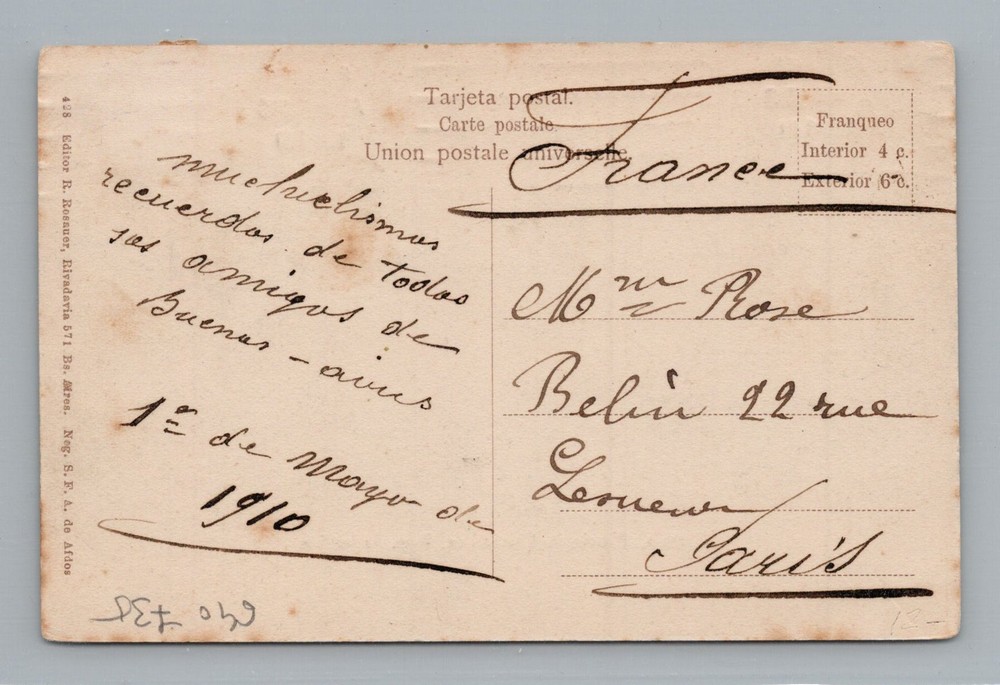 Tarjeta postal.
Carte postale.
Union postale universelle.
Franqueo
Interior 4 c.
Exterior 6 c.
France
muchuelismos
recuerdos de todos
sus amigos de
Buenos-aires
1º de Mayo de
1910
Mme Rose
Belin 22 rue
Paris
428 Editor R. Rosauer, Rivadavia 571 Bs. Aires. Neg. S. F. A. de Afdos